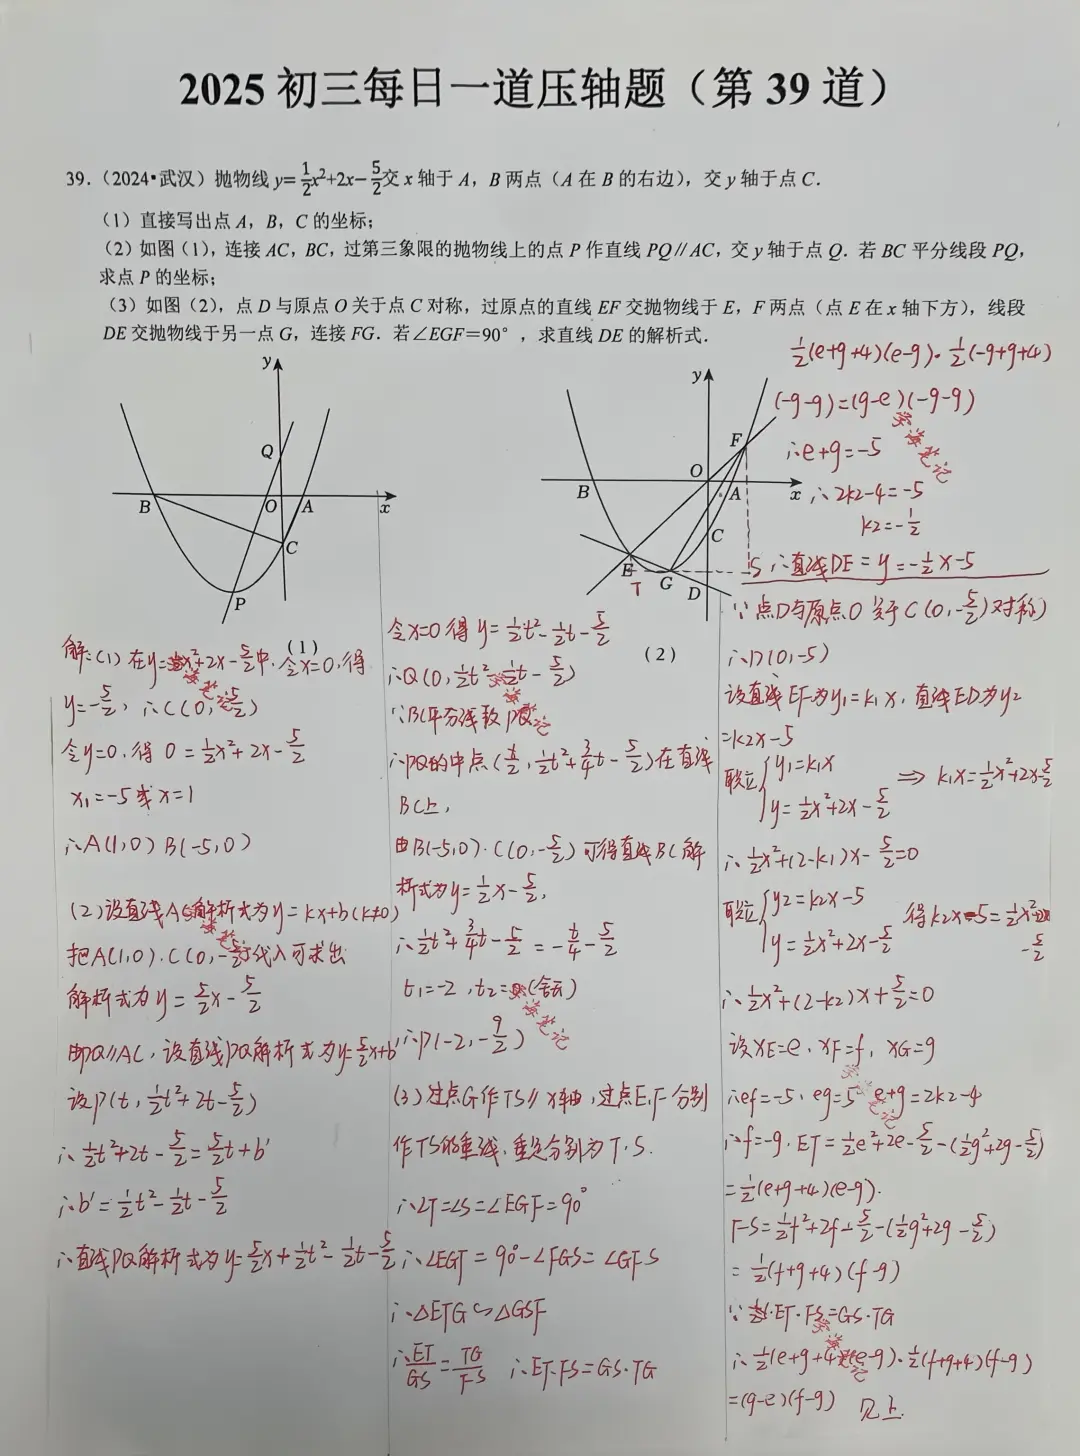 2025 初三每日一道压轴题（第 39 道）
39.（2024•武汉）抛物线 y=1/2x²+2x−5/2交 x 轴于 A，B 两点（A 在 B 的右边），交 y 轴于点 C.
（1）直接写出点 A，B，C 的坐标；
（2）如图（1），连接 AC，BC，过第三象限的抛物线上的点 P 作直线 PQ∥AC，交 y 轴于点 Q. 若 BC 平分线段 PQ，
求点 P 的坐标；
（3）如图（2），点 D 与原点 O 关于点 C 对称，过原点的直线 EF 交抛物线于 E，F 两点（点 E 在 x 轴下方），线段
DE 交抛物线于另一点 G，连接 FG. 若∠EGF=90°，求直线 DE 的解析式.
y
Q
B
O
A
x
C
P
（1）
y
F
B
O
A
x
C
E
T
G
D
S
（2）
解:(1) 在y=1/2x²+2x-5/2中,令x=0,得
y=-5/2, ∴C(0,-5/2)
令y=0,得 0=1/2x²+2x-5/2
x₁=-5或x=1
∴A(1,0) B(-5,0)
(2)设直线AC解析式为y=kx+b(k≠0)
把A(1,0).C(0,-5/2)代入可求出
解析式为y=5/2x-5/2
由PQ∥AC,设直线PQ解析式为y=5/2x+b'
设P(t,1/2t²+2t-5/2)
∴1/2t²+2t-5/2=5/2t+b'
∴b'=1/2t²-1/2t-5/2
∴直线PQ解析式为y=5/2x+1/2t²-1/2t-5/2
令x=0得y=1/2t²-1/2t-5/2
∴Q(0,1/2t²-1/2t-5/2)
∵BC平分线段PQ
∴PQ的中点(t/2,1/2t²+3/4t-5/2)在直线
BC上,
由B(-5,0).C(0,-5/2)可得直线BC解
析式为y=1/2x-5/2,
∴1/2t²+3/4t-5/2=-t/4-5/2
t₁=-2,t₂=0(舍去)
∴P(-2,-9/2)
(3)过点G作TS∥x轴,过点E,F分别
作TS的垂线,垂足分别为T.S.
∴∠T=∠S=∠EGF=90°
∴∠EGT=90°-∠FGS=∠GFS
∴△ETG∽△GSF
∴ET/GS=TG/FS ∴ET·FS=GS·TG
∵点D与原点O关于C(0,-5/2)对称)
∴D(0,-5)
设直线EF为y₁=k₁x,直线ED为y2
=k2x-5
联立{y₁=k₁x
y=1/2x²+2x-5/2 ⇒ k₁x=1/2x²+2x-5/2
∴1/2x²+(2-k₁)x-5/2=0
联立{y2=k2x-5
y=1/2x²+2x-5/2 得k2x-5=1/2x²+2x
-5/2
∴1/2x²+(2-k2)x+5/2=0
设XE=e,XF=f,XG=g
∴ef=-5,eg=5 e+g=2k2-4
∴f=-g.ET=1/2e²+2e-5/2-(1/2g²+2g-5/2)
=1/2(e+g+4)(e-g).
FS=1/2f²+2f-5/2-(1/2g²+2g-5/2)
=1/2(f+g+4)(f-g)
∵ET·FS=GS·TG
∴1/2(e+g+4)(e-g)·1/2(f+g+4)(f-g)
=(g-e)(f-g) 见上.
1/2(e+g+4)(e-g)·1/2(-g+g+4)
(-g-g)=(g-e)(-g-g)
∴e+g=-5
∴2k2-4=-5
k2=-1/2
∴直线DE=y=-1/2x-5
学海笔记
学海笔记
学海笔记
学海笔记
学海笔记
学海笔记
学海笔记